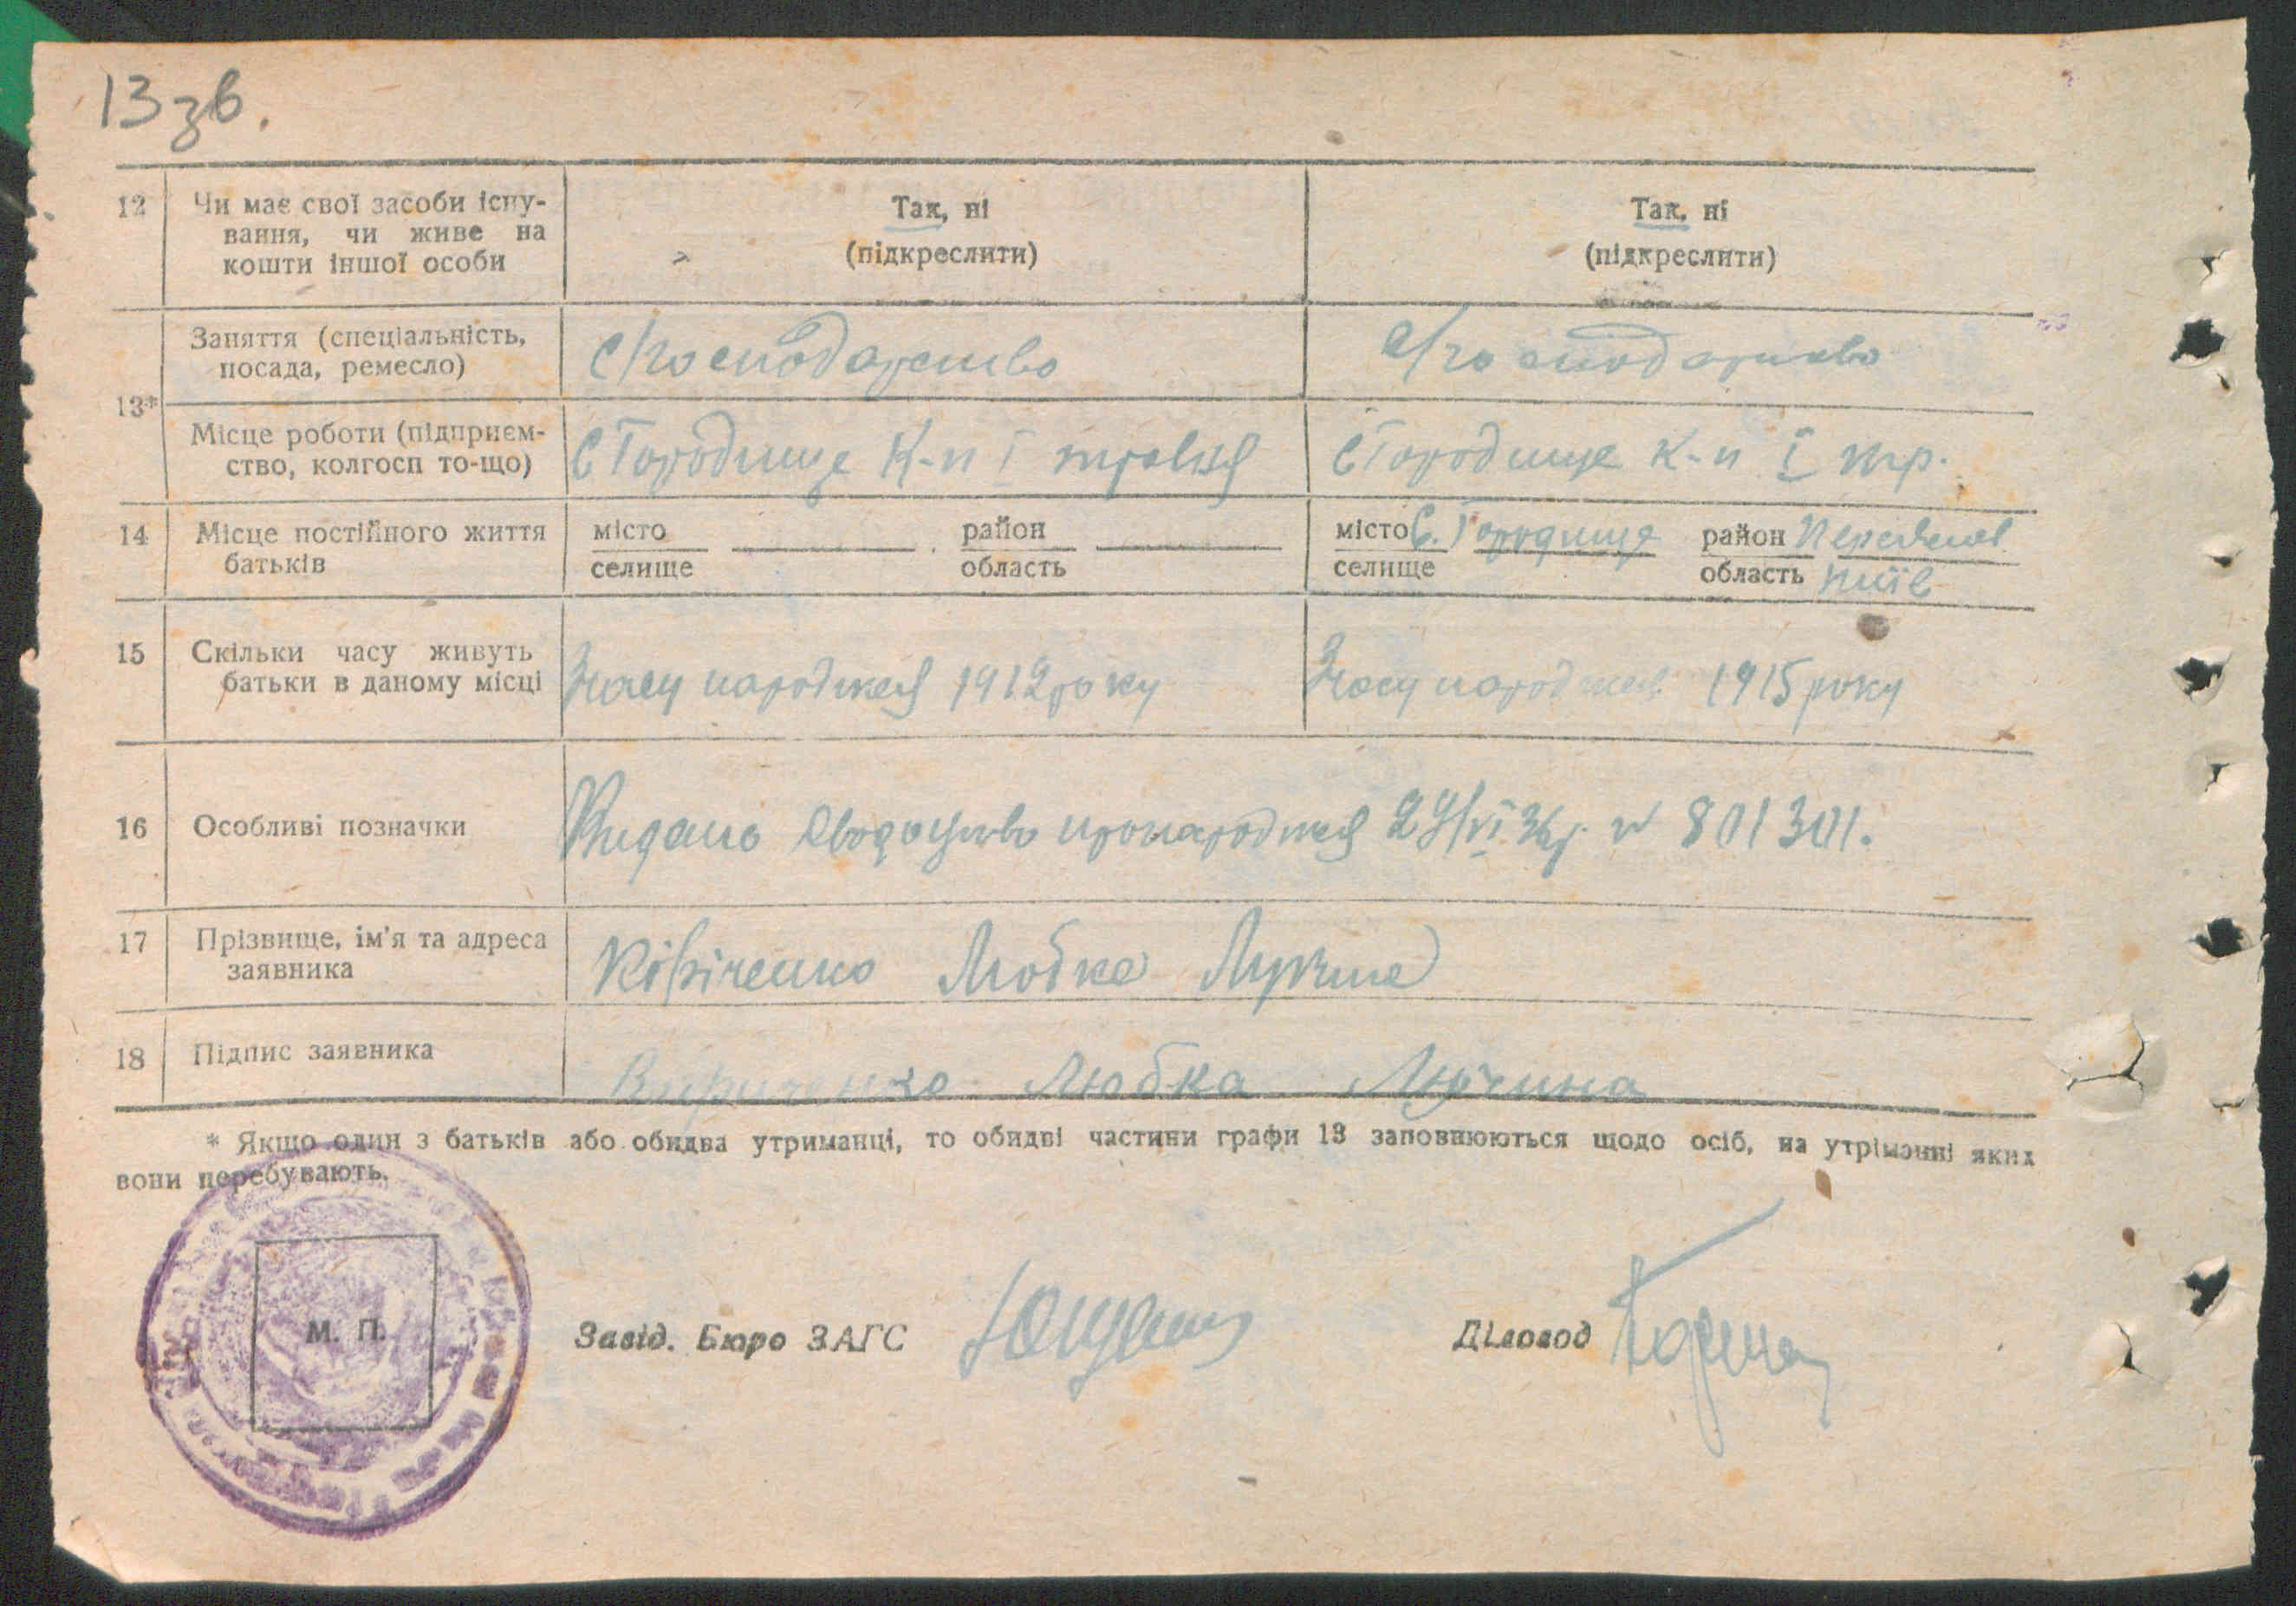 13 зв.
12 Чи має свої засоби існу-
вання, чи живе на
кошти іншої особи
Так, ні
(підкреслити)
Так, ні
(підкреслити)
13*
Заняття (спеціальність,
посада, ремесло)
с/господарство
с/господарство
Місце роботи (підприєм-
ство, колгосп то-що)
С Городище К-п І травня
С Городище К-п І тр.
14 Місце постійного життя
батьків
місто
селище
район
область
місто С. Городище
селище
район
область Київ
15 Скільки часу живуть
батьки в даному місці
1912 року
1915 року
16 Особливі позначки
Видано 801301.
17 Прізвище, ім'я та адреса
заявника
Кіріченко Любка
18 Підпис заявника
Кириченко Любка
* Якщо один з батьків або обидва утриманці, то обидві частини графи 13 заповнюються щодо осіб, на утріманні яких
вони перебувають.
М. П.
Завід. Бюро ЗАГС
Діловод